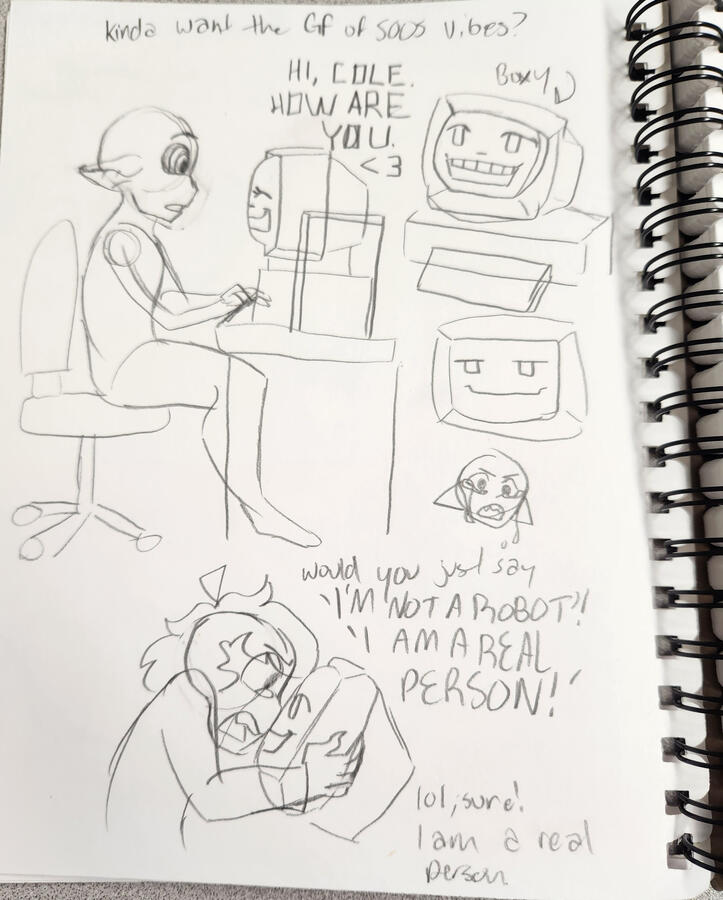 kinda want the GF of SOOS vibes?
HI, COLE.
HOW ARE
YOU.
<3
Boxy
would you just say
"I'M NOT A ROBOT"!
"I AM A REAL
PERSON!"
lol, sure!
I am a real
person